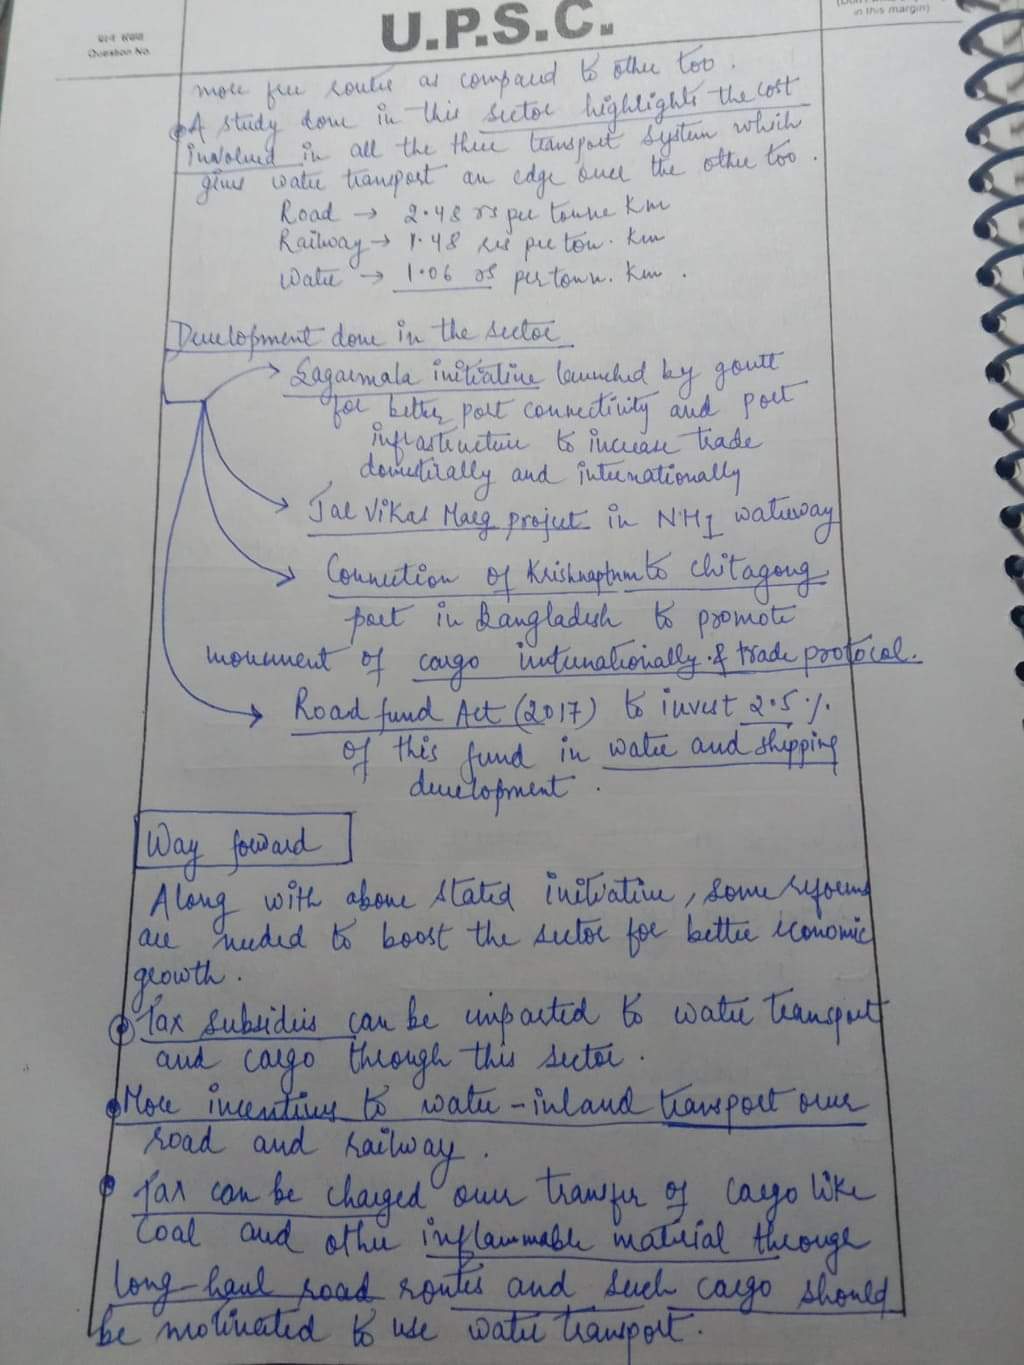 प्रश्न संख्या
Question No.
U.P.S.C.
in this margin)
more free routes as compared to other too.
A study done in this sector highlights the cost
involved in all the three transport system which
gives water transport an edge over the other too.
Road → 2.48 rs per tonne Km
Railway → 1.48 rs per ton. Km
Water → 1.06 rs per tonn. Km.
Development done in the sector
Sagarmala initiative launched by govtt
for better port connectivity and port
infrastructure to increase trade
domestically and internationally
Jal Vikas Marg project in NH1 waterway
Connection of Krishnaptnm to chitagong
port in Bangladesh to promote
movement of cargo internationally & trade protocol.
Road fund Act (2017) to invest 2.5%
of this fund in water and shipping
development.
Way forward
Along with above stated initiative, some reforms
are needed to boost the sector for better economic
growth.
Tax subsidies can be imparted to water transport
and cargo through this sector.
More incentives to water-inland transport over
road and railway.
Tax can be charged over transfer of cargo like
Coal and other inflammable material through
long-haul road routes and such cargo should
be motivated to use water transport.